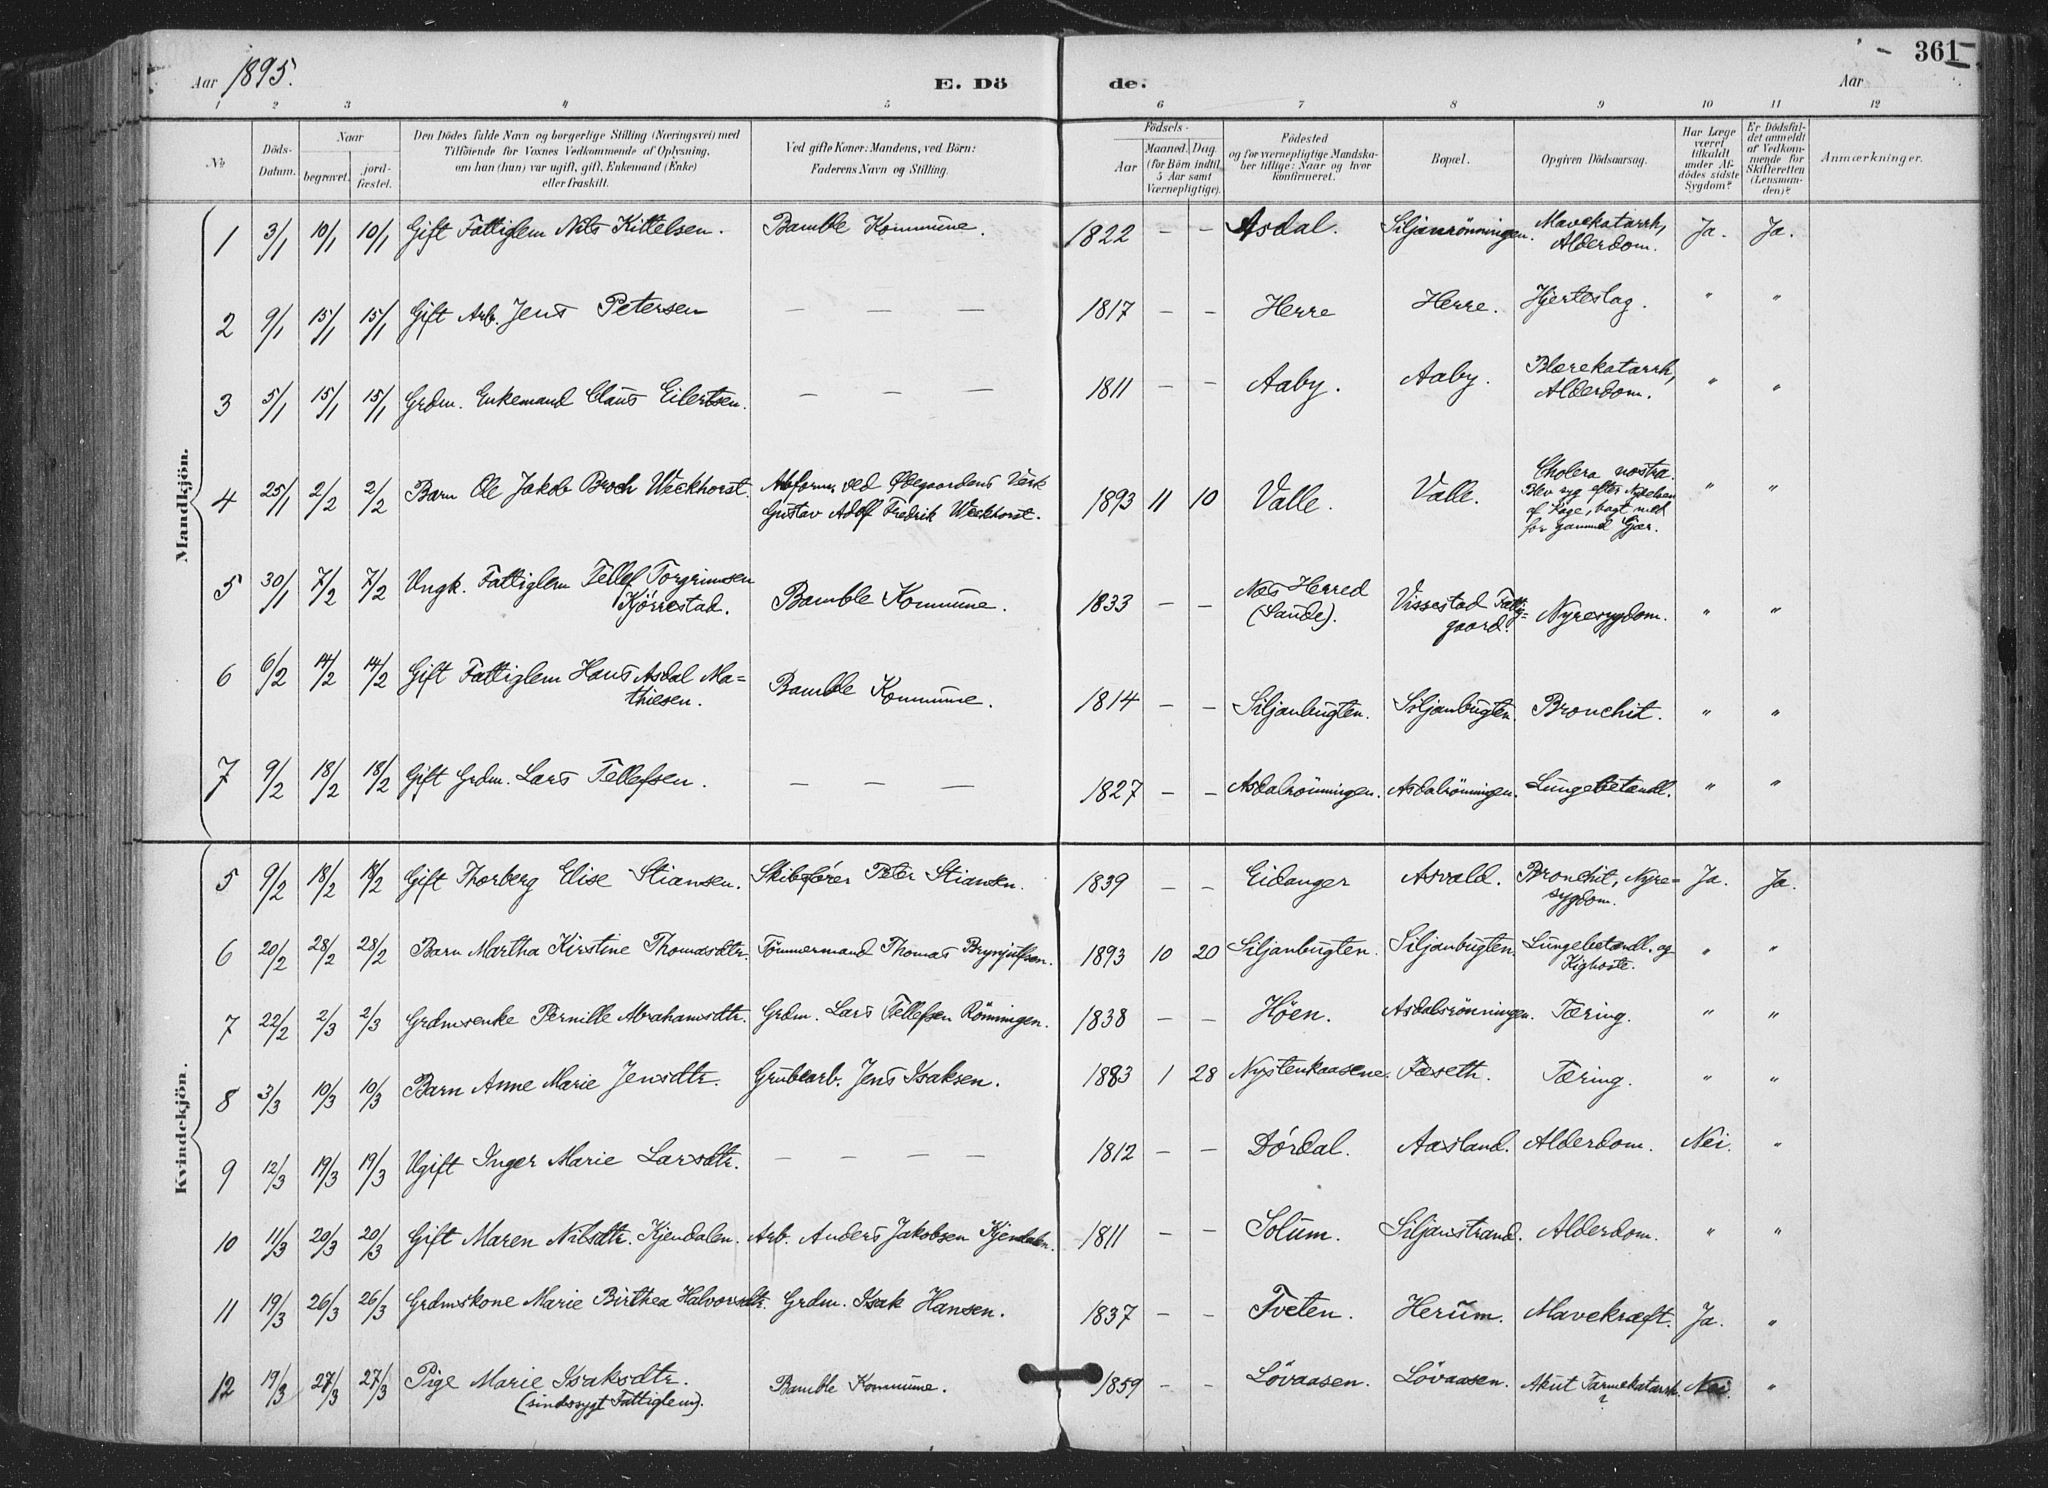 Aar 1895.
E. Döde.
Aar
361
1 2 3 4 5 6 7 8 9 10 11 12
№
Döds-Datum.
Naar
begravet.
jordfæstet.
Den Dödes fulde Navn og borgerlige Stilling (Næringsvei) med
Tilföiende for Voxnes Vedkommende af Oplysning,
om han (hun) var ugift, gift, Enkemand (Enke)
eller fraskilt.
Ved gifte Koner: Mandens, ved Börn:
Faderens Navn og Stilling.
Födsels-
Aar
Maaned. Dag
(for Börn indtil
5 Aar samt
Værnepligtige).
Födested
og for værnepligtige Mandska-
ber tillige: Naar og hvor
konfirmeret.
Bopæl.
Opgiven Dödsaarsag.
Har Læge
været
tilkaldt
under Af-
dödes sidste
Sygdom?
Er Dödsfal-
det anmeldt
af Vedkom-
mende for
Skifteretten
(Lensman-
den)?
Anmærkninger.
Mandkjön.
1 3/1 10/1 10/1 Gift Fattiglem Nils Kittelsen. Bamble Kommune. 1822 – – Asdal. Siljanrönningen. Mavekatarrh, Ja. Ja.
Alderdom.
2 9/1 15/1 15/1 Gift Arb. Jens Petersen – – – 1817 – – Herre Herre. Hjerteslag. " "
3 5/1 15/1 15/1 Grdm. Enkemand Claus Eilertsen. – – – 1811 – – Aaby. Aaby. Blærekatarrh, " "
Alderdom.
4 25/1 2/2 2/2 Barn Ole Jakob Broch Weckhorst. ved Ødegaardens Verk 1893 11 10 Valle. Valle. Cholera nostra. " "
Gustav Adolf Fredrik Weckhorst. Blev syg efter Nydelsen
af Kage, bagt med
for gammel Gjær.
5 30/1 7/2 7/2 Ungk. Fattiglem Tellef Torgrimsen Bamble Kommune. 1833 – – Næs Herred Vissestad Fattig- Nyresygdom. " "
Kjörrestad. (Saude). gaard.
6 6/2 14/2 14/2 Gift Fattiglem Hans Asdal Ma= Bamble Kommune. 1814 – – Siljanbugten. Siljanbugten. Bronchit. " "
thiesen.
7 9/2 18/2 18/2 Gift Grdm. Lars Tellefsen. – – – 1827 – – Asdalrönningen. Asdalrönningen. Lungebetændl. " "
Kvindekjön.
5 9/2 18/2 18/2 Gift Thorberg Elise Stiansen. Skibsförer Peter Stiansen. 1839 – – Eidanger Asvald. Bronchit, Nyre= Ja. Ja.
sygdom.
6 20/2 28/2 28/2 Barn Martha Kirstine Thomasdtr. Tömmermand Thomas Brynjulfsen. 1893 10 20 Siljanbugten. Siljanbugten. Lungebetændl. og " "
Kighoste.
7 22/2 2/3 2/3 Grdmsenke Pernille Abrahamsdtr. Grdm. Lars Tellefsen Rönningen. 1838 – – Höen. Asdalsrönningen. Tæring. " "
8 3/3 10/3 10/3 Barn Anne Marie Jensdtr. Grubearb. Jens Isaksen. 1883 1 28 Nystenkaasene. Fæseth. Tæring. " "
9 12/3 19/3 19/3 Ugift Inger Marie Larsdtr. – – – – 1812 – – Dördal. Aasland. Alderdom. Nei. "
10 11/3 20/3 20/3 Gift Maren Nilsdtr. Kjendalen. Arb. Anders Jakobsen Kjendalen. 1811 – – Solum. Siljanstrand. Alderdom. " "
11 19/3 26/3 26/3 Grdmskone Marie Birthea Halvorsdtr. Grdm. Isak Hansen. 1837 – – Tveten. Herum. Mavekræft. Ja. "
12 19/3 27/3 27/3 Pige Marie Isaksdtr. Bamble Kommune. 1859 – – Lövaasen. Lövaasen. Akut Tarmekatarrh. Nei. "
(sindssygt Fattiglem). ?